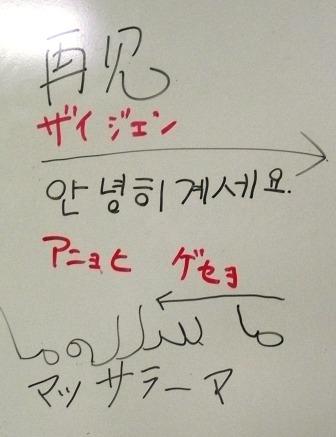 再见
ザイ ジェン
안녕히 계세요.
アニョヒ ゲセヨ
マッサラーマ